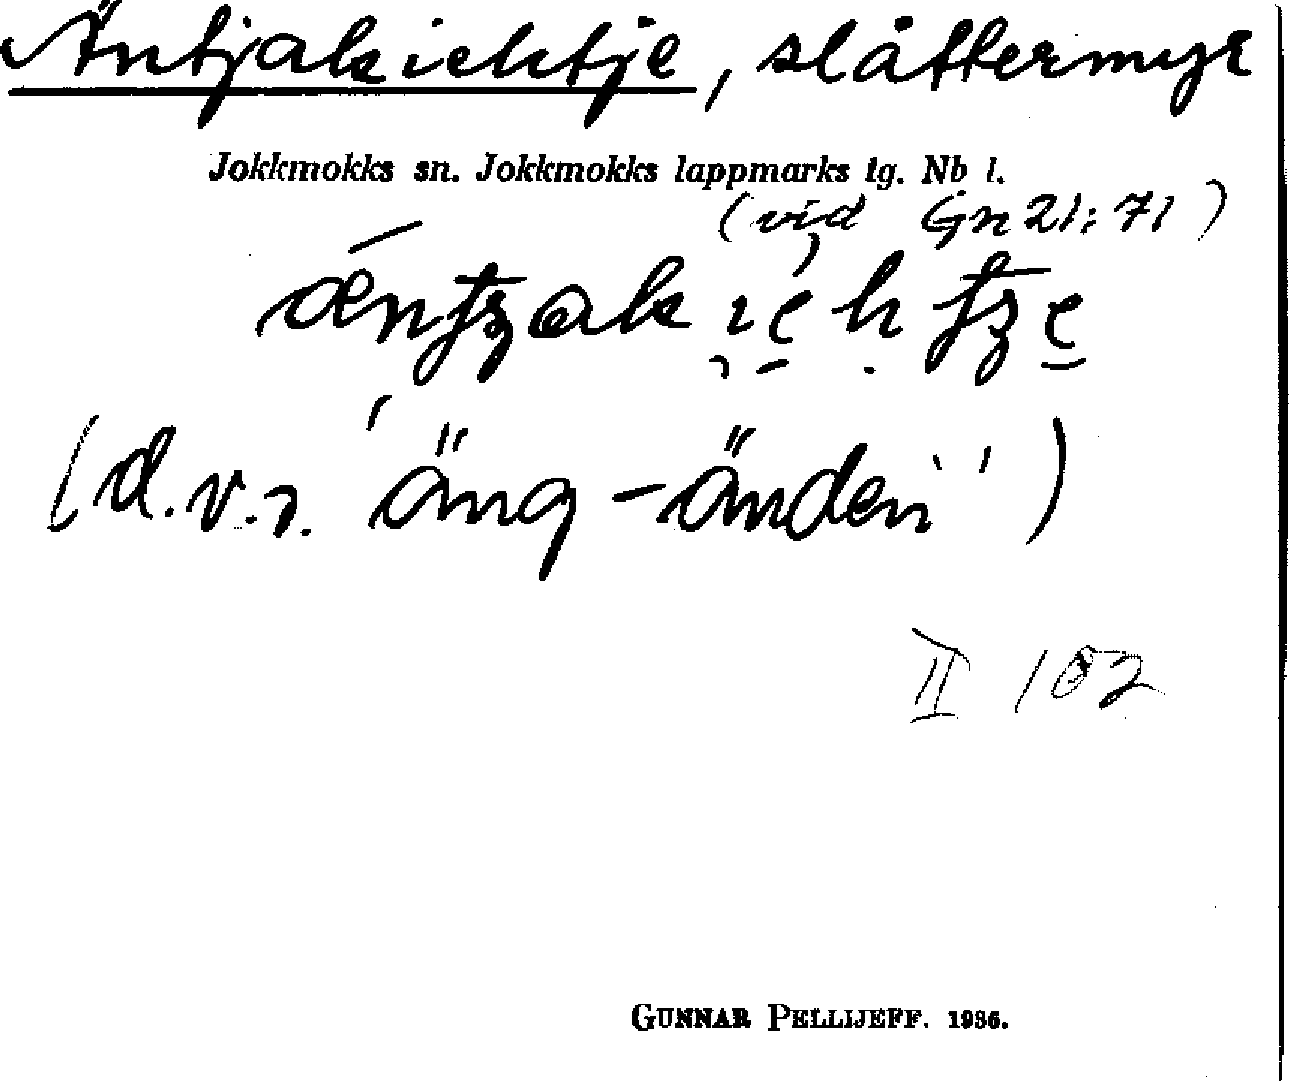 Äntjakiehtje, slåttermyr
Jokkmokks sn. Jokkmokks lappmarks tg. Nb l.
(vid Gn 21:71)
(d.v.s. 'äng-änden')
II 102
GUNNAR PELLIJEFF. 1936.